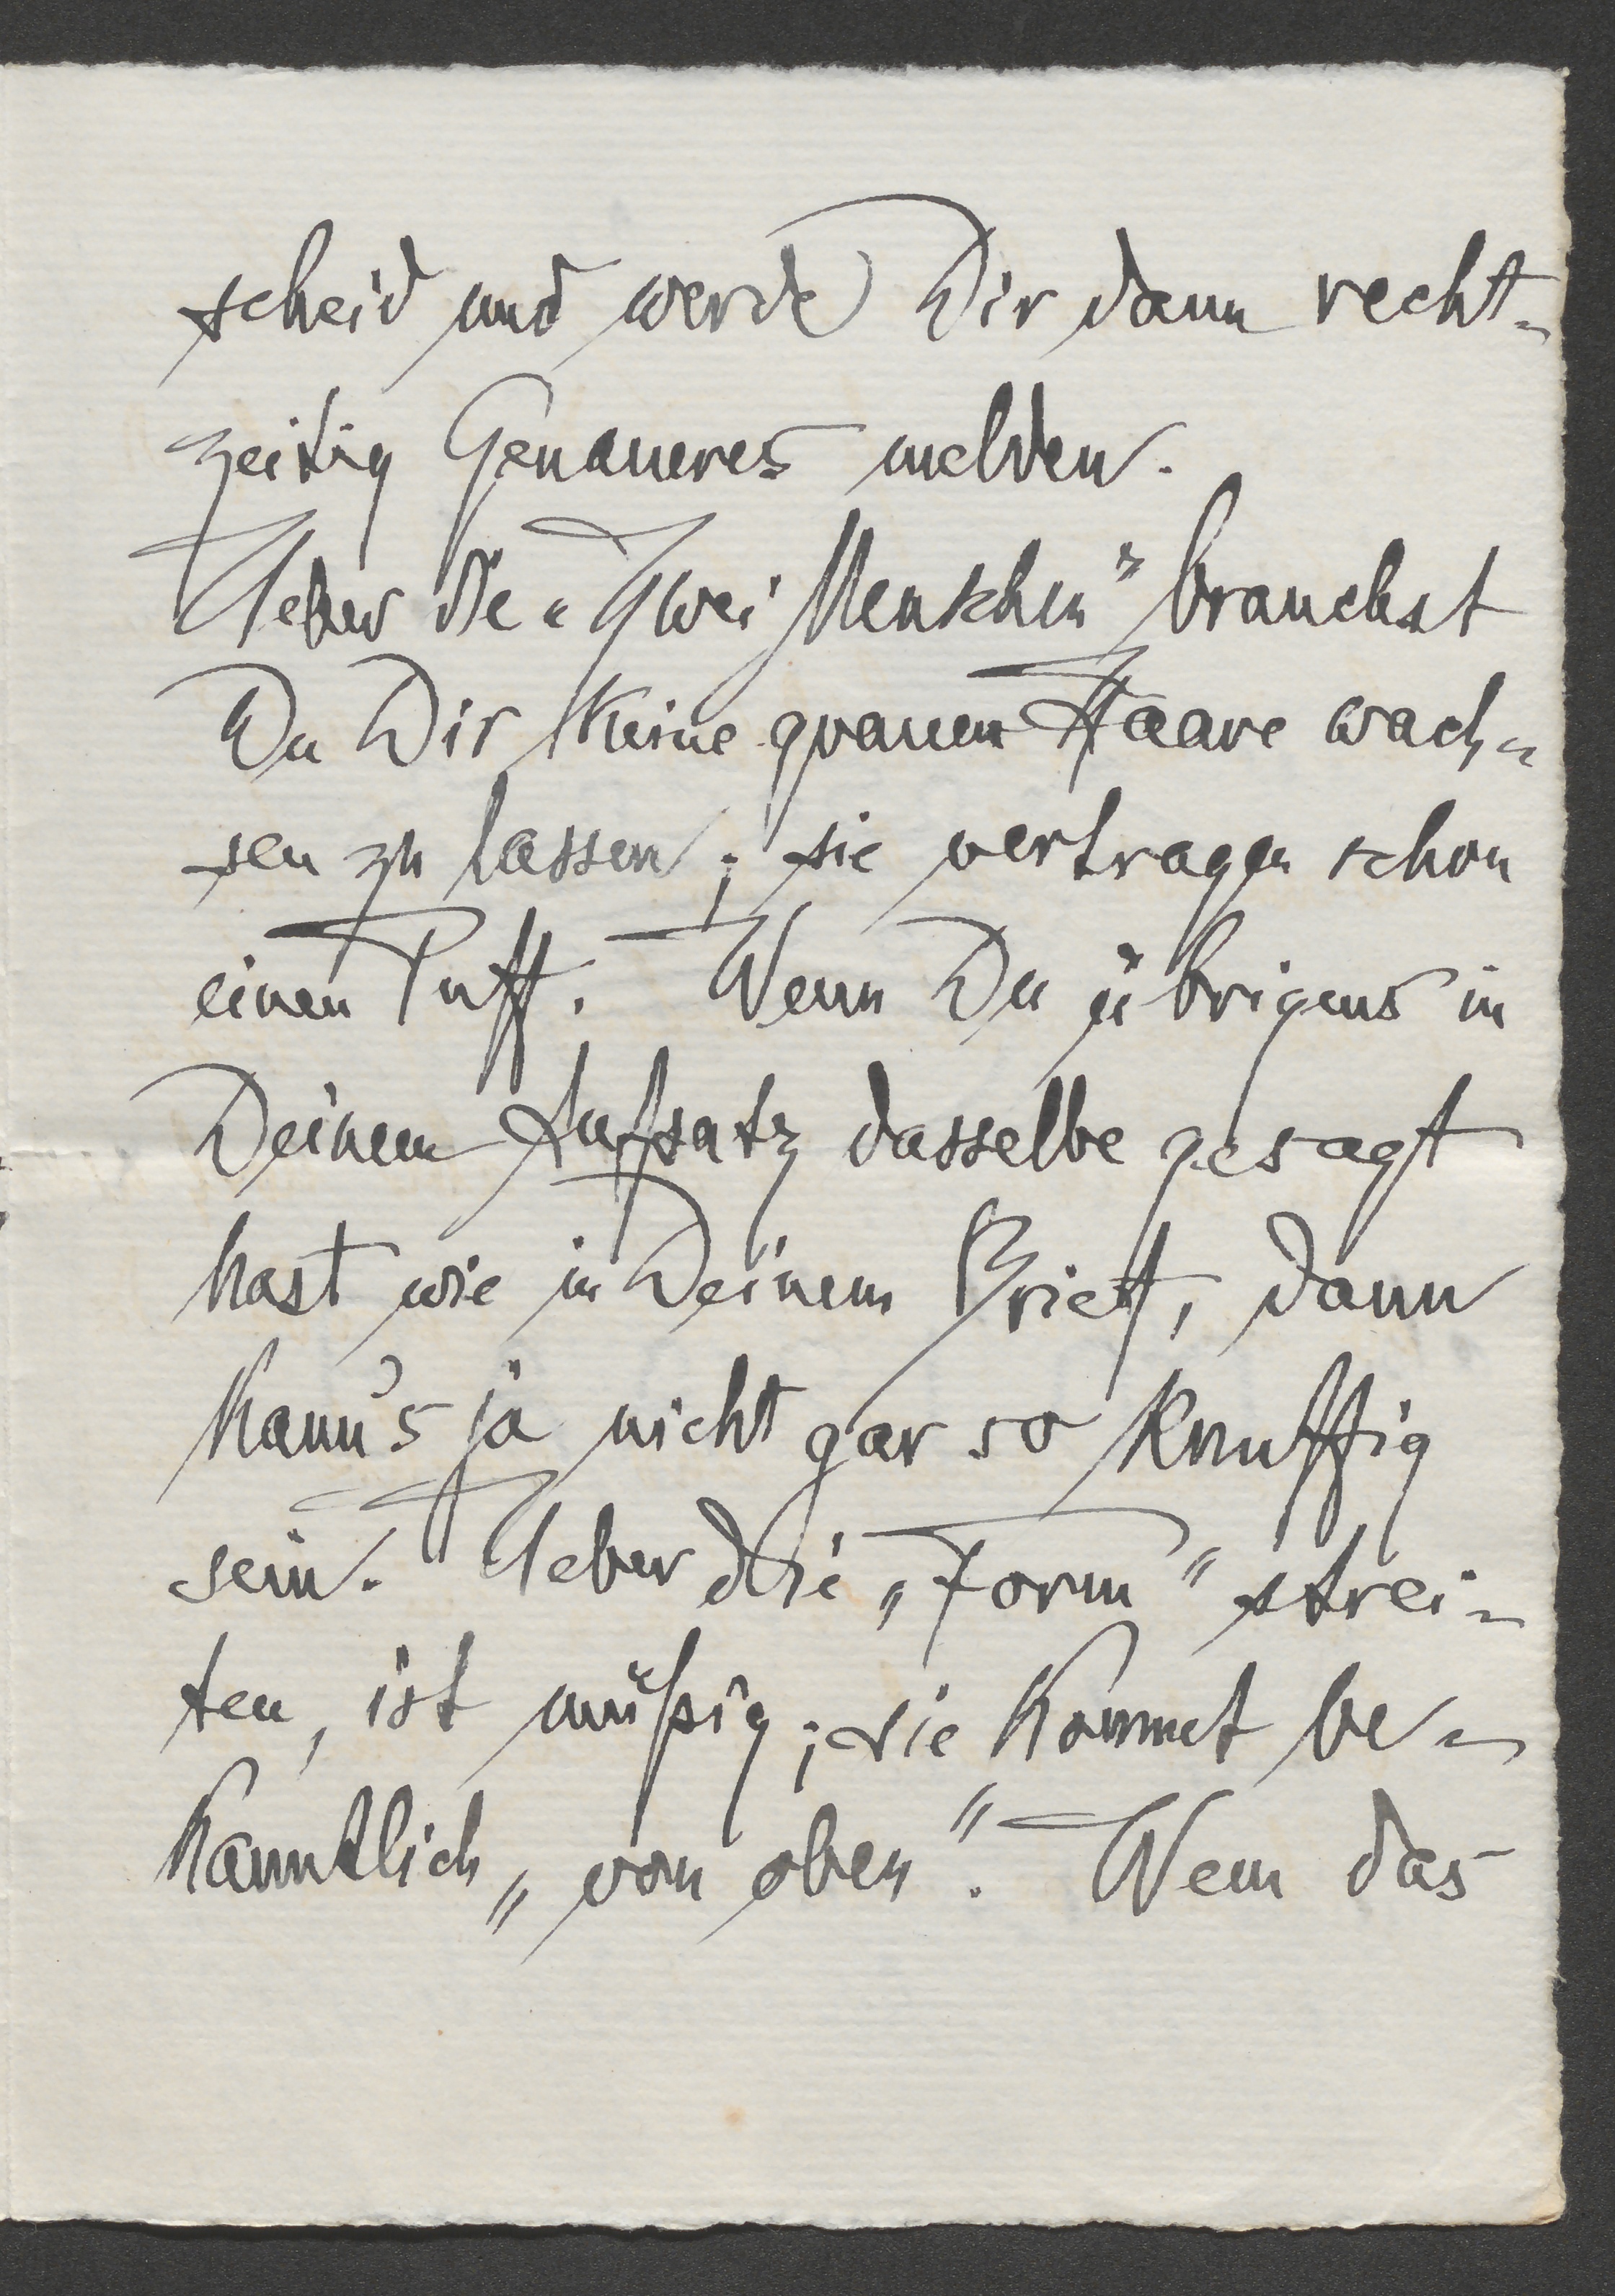 scheid und werde Dir dann recht-
zeitig Genaueres melden.
Ueber die „Zwei Menschen" brauchst
Du Dir keine grauen Haare wach-
sen zu lassen; sie vertragen schon
einen Puff. Wenn Du übrigens in
Deinem Aufsatz dasselbe gesagt
hast wie in Deinem Brief, dann
kann's ja nicht gar so knuffig
sein. Ueber die „Form" strei-
ten, ist müßig; die kommt be-
kanntlich „von oben". Wem das